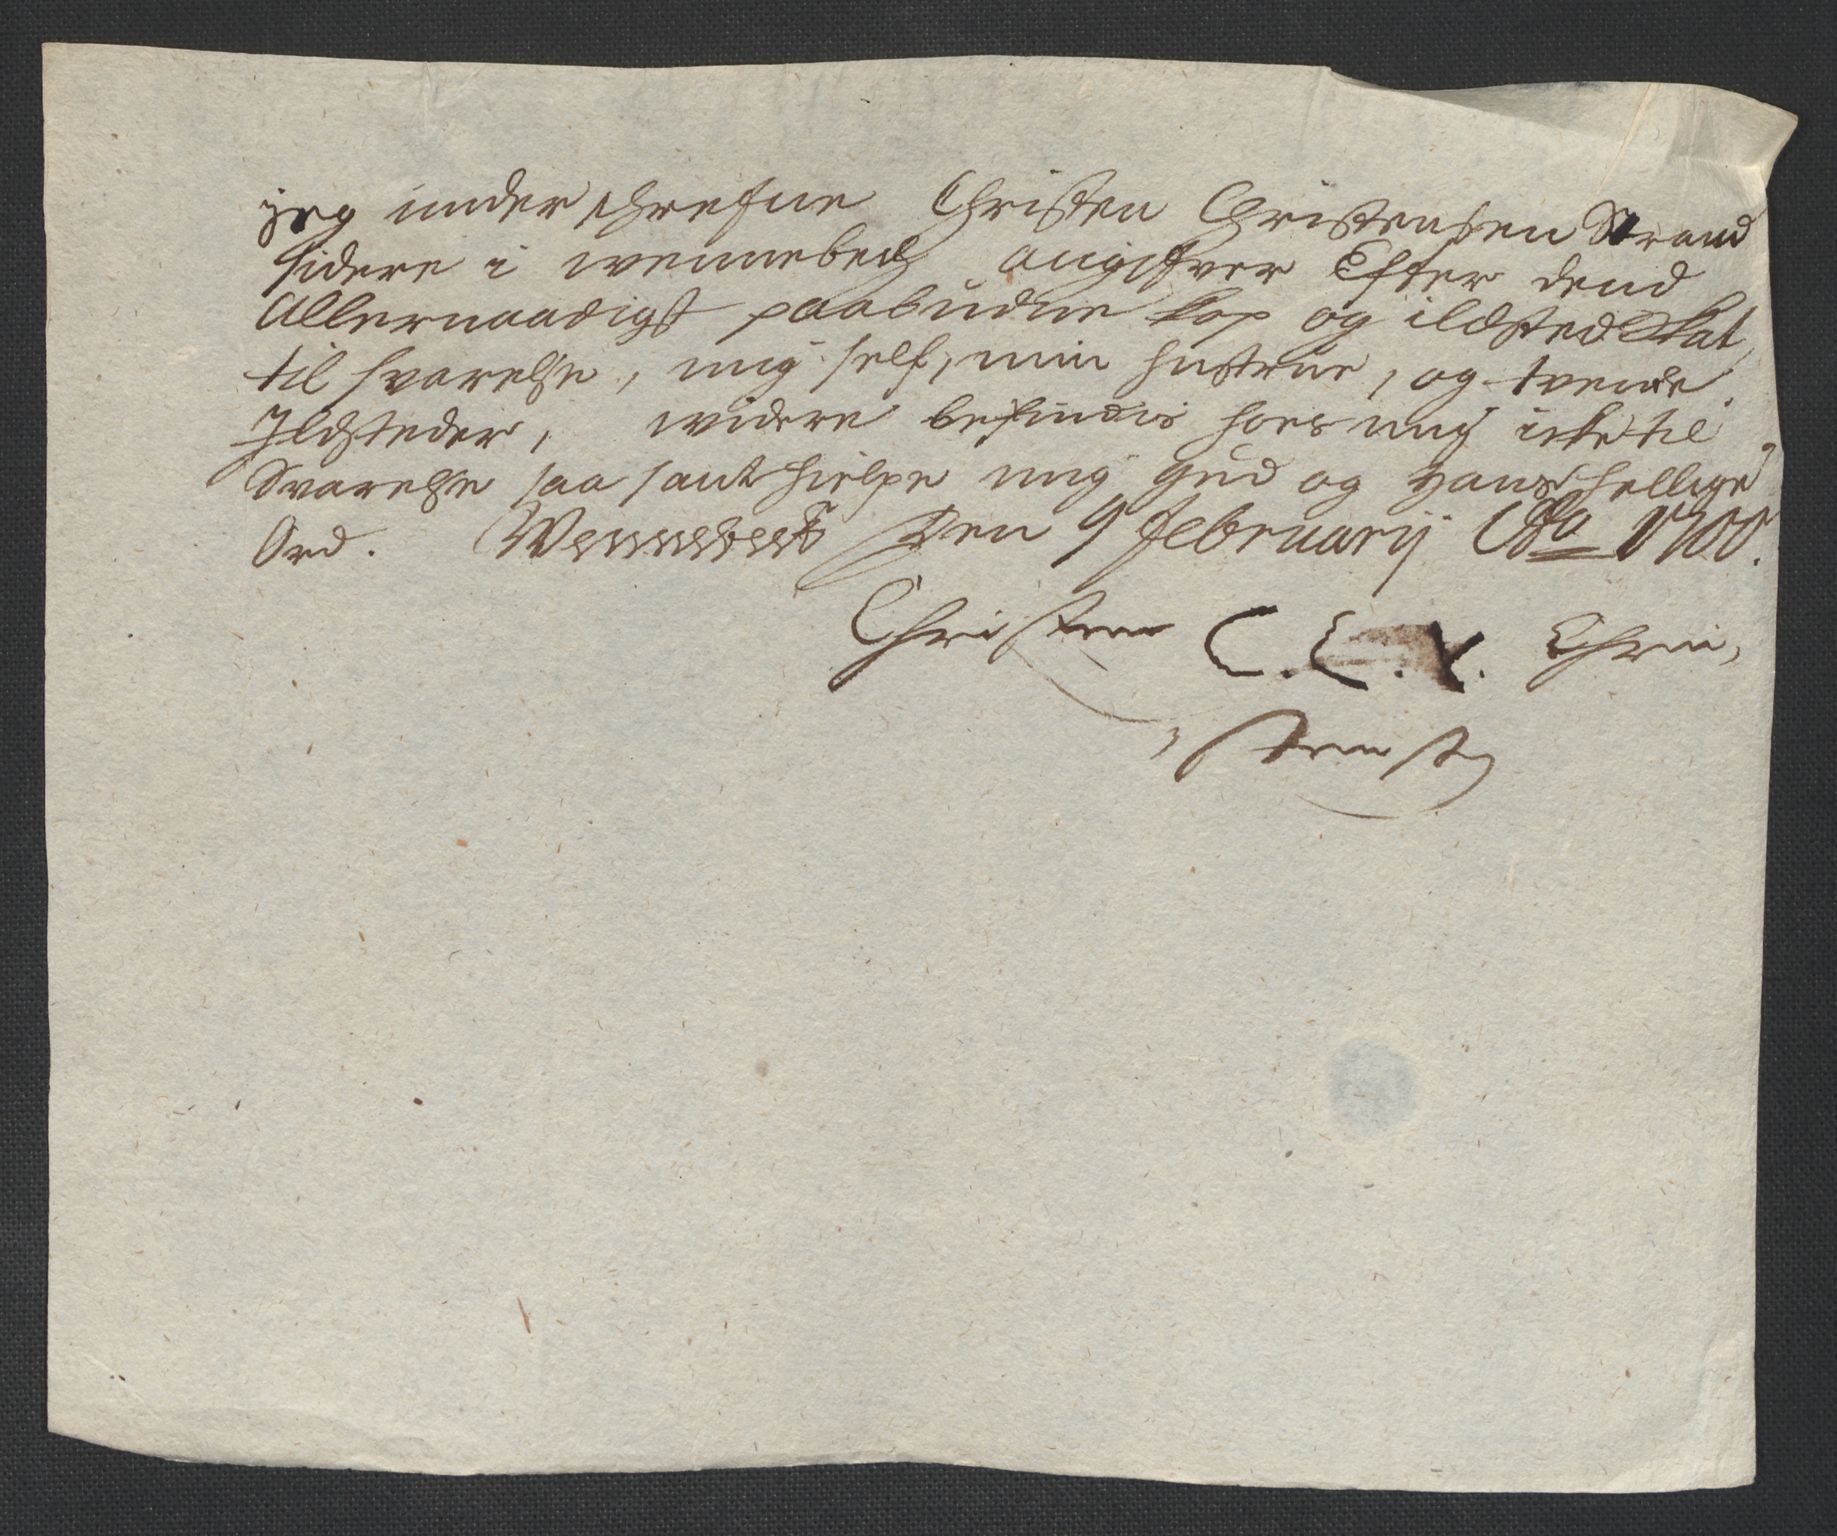 jeg under schrefne Christen Christensen Strand
sidere i wennebech angifver Efter dend
Allernaadigst paabudne kop og ildsted Skat,
til svarelse, mig self, min hustrue, og tvende
Jldsteder, widere befindis hoes mig icke til
Svarelse saa sant hielpe mig gud og hans hellige
Ord. Wennebech Den 9 Februarij Ao 1700.
Christen C. C. Chri,
, stens